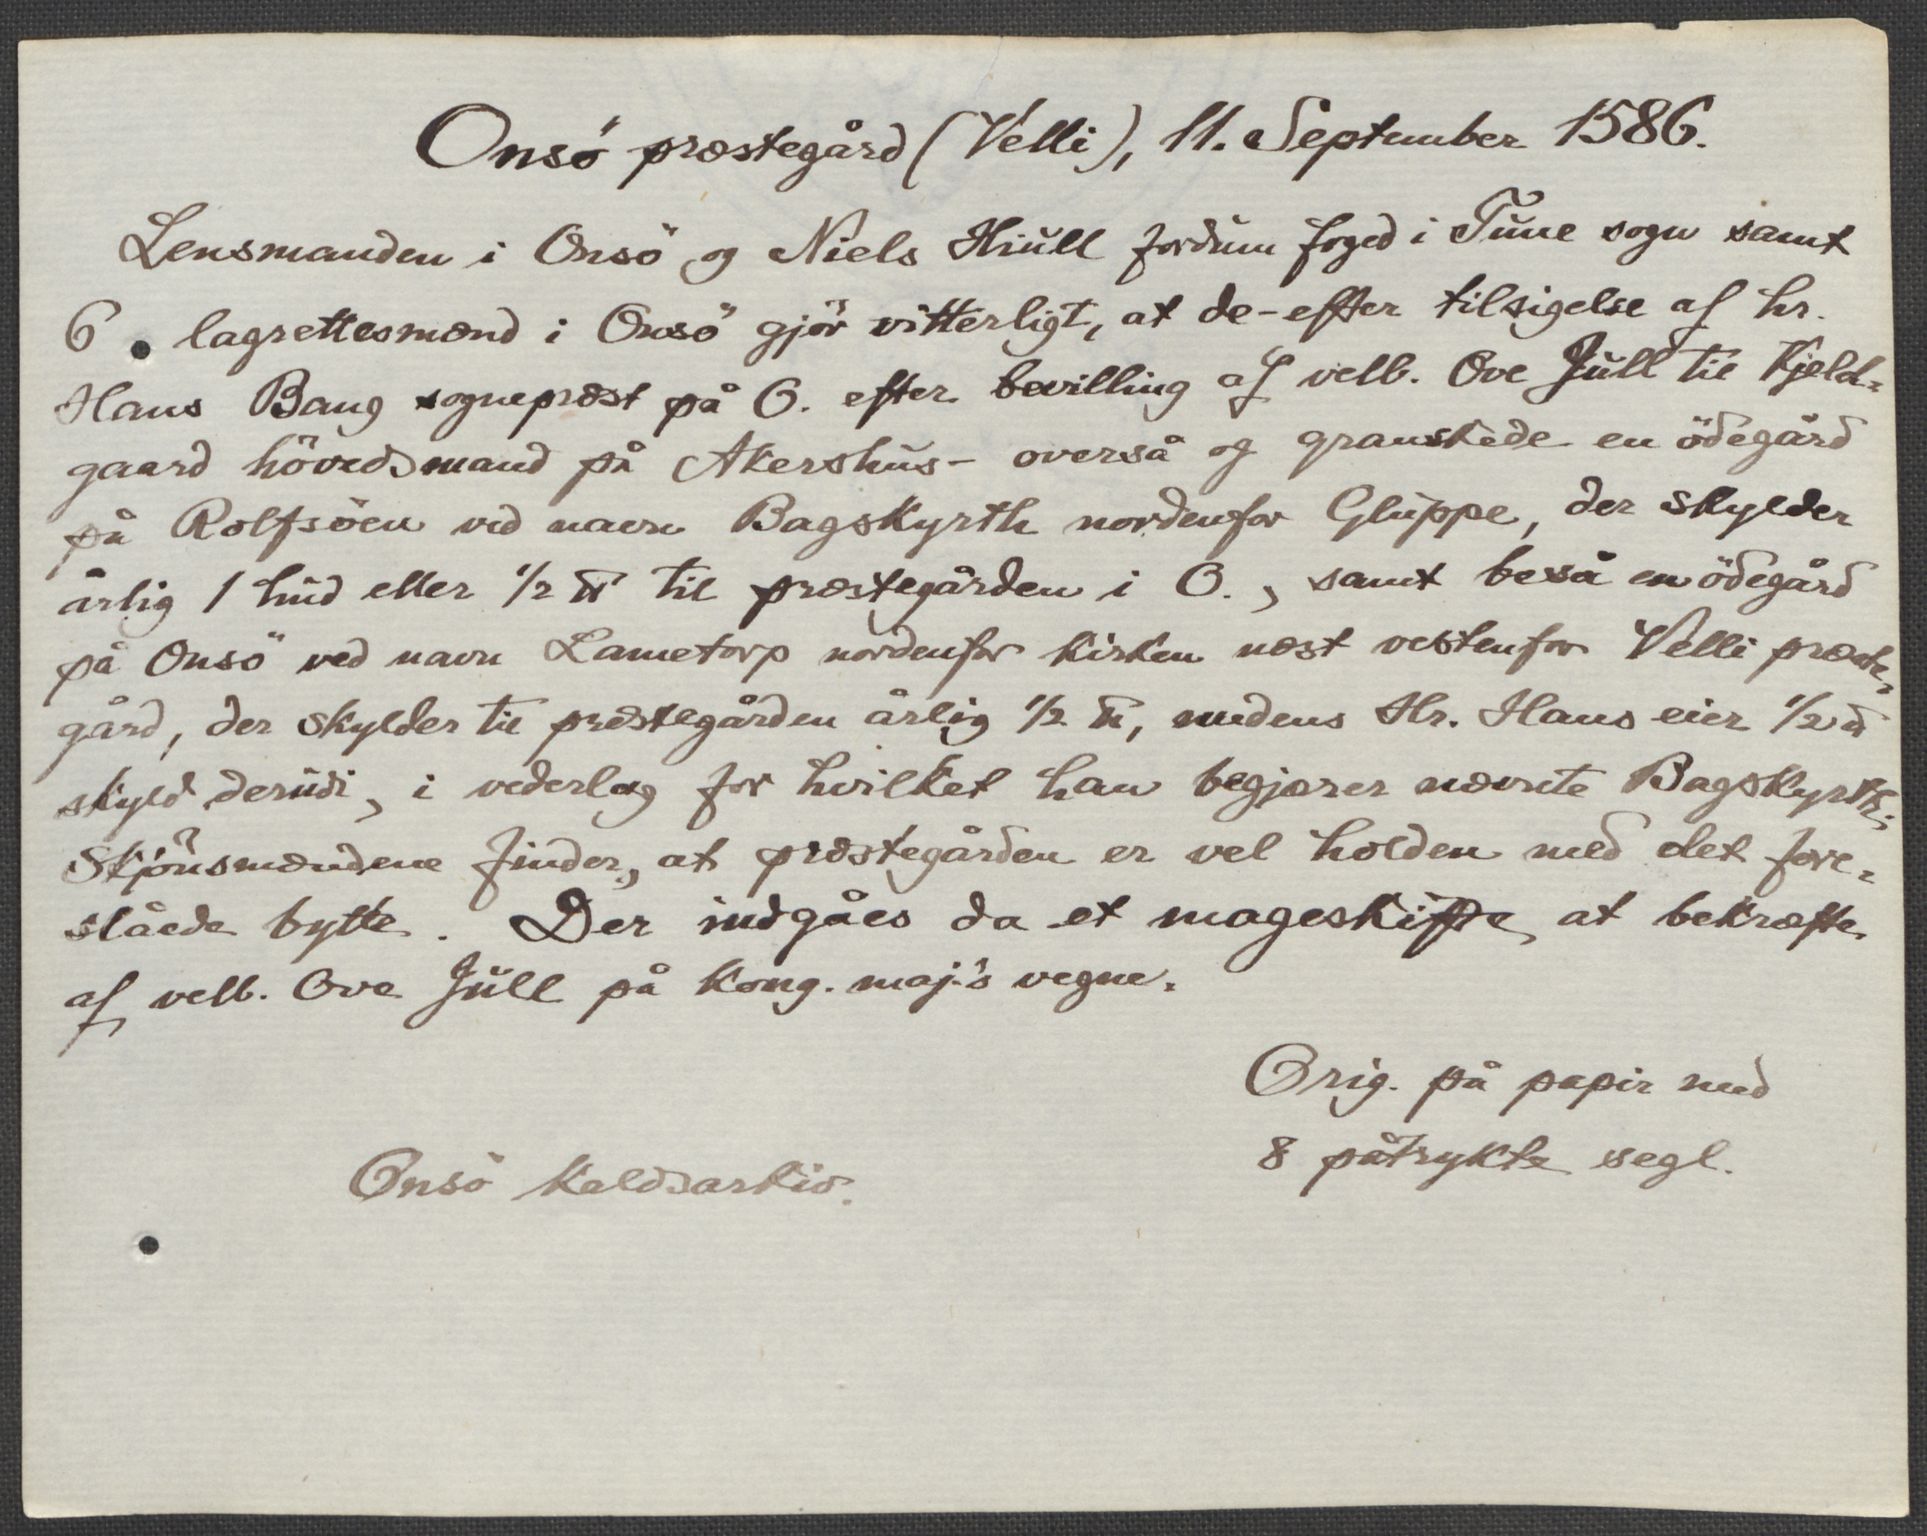 Onsö præstegård (Velli), 11. September 1586.
Lensmanden i Onsö og Niels Hiull fordum foged i Tune sogn samt
6 lagrettesmænd i Onsö gjör vitterligt, at de - efter tilsigelse af hr.
Hans Bang sognepræst på O. efter bevilling af velb. Ove Jull til Kjeld=
gaard hövedsmand på Akershus - overså og granskede en ödegård
på Rolfsöen ved navn Bagskyrth nordenfor Gluppe, der skylder
årlig 1 hud eller 1/2 ₶ til præstegården i O., samt beså en ödegård
på Onsö ved navn Lametorp nordenfor kirken næst vestenfor Velli præste=
gård, der skylder til præstegården årlig 1/2 ₶, medens Hr. Hans eier 1/2 ₶
skyld derudi, i vederlag for hvilket han begjærer nævnte Bagskyrth.
Skjönsmændene finder, at præstegården er vel holden med det fore=
slåede bytte. Der indgåes da et mageskifte, at bekræfte
af velb. Ove Jull på kong. maj.'s vegne.
Orig. på papir med
8 påtrykte segl.
Onsö kaldsarkiv.